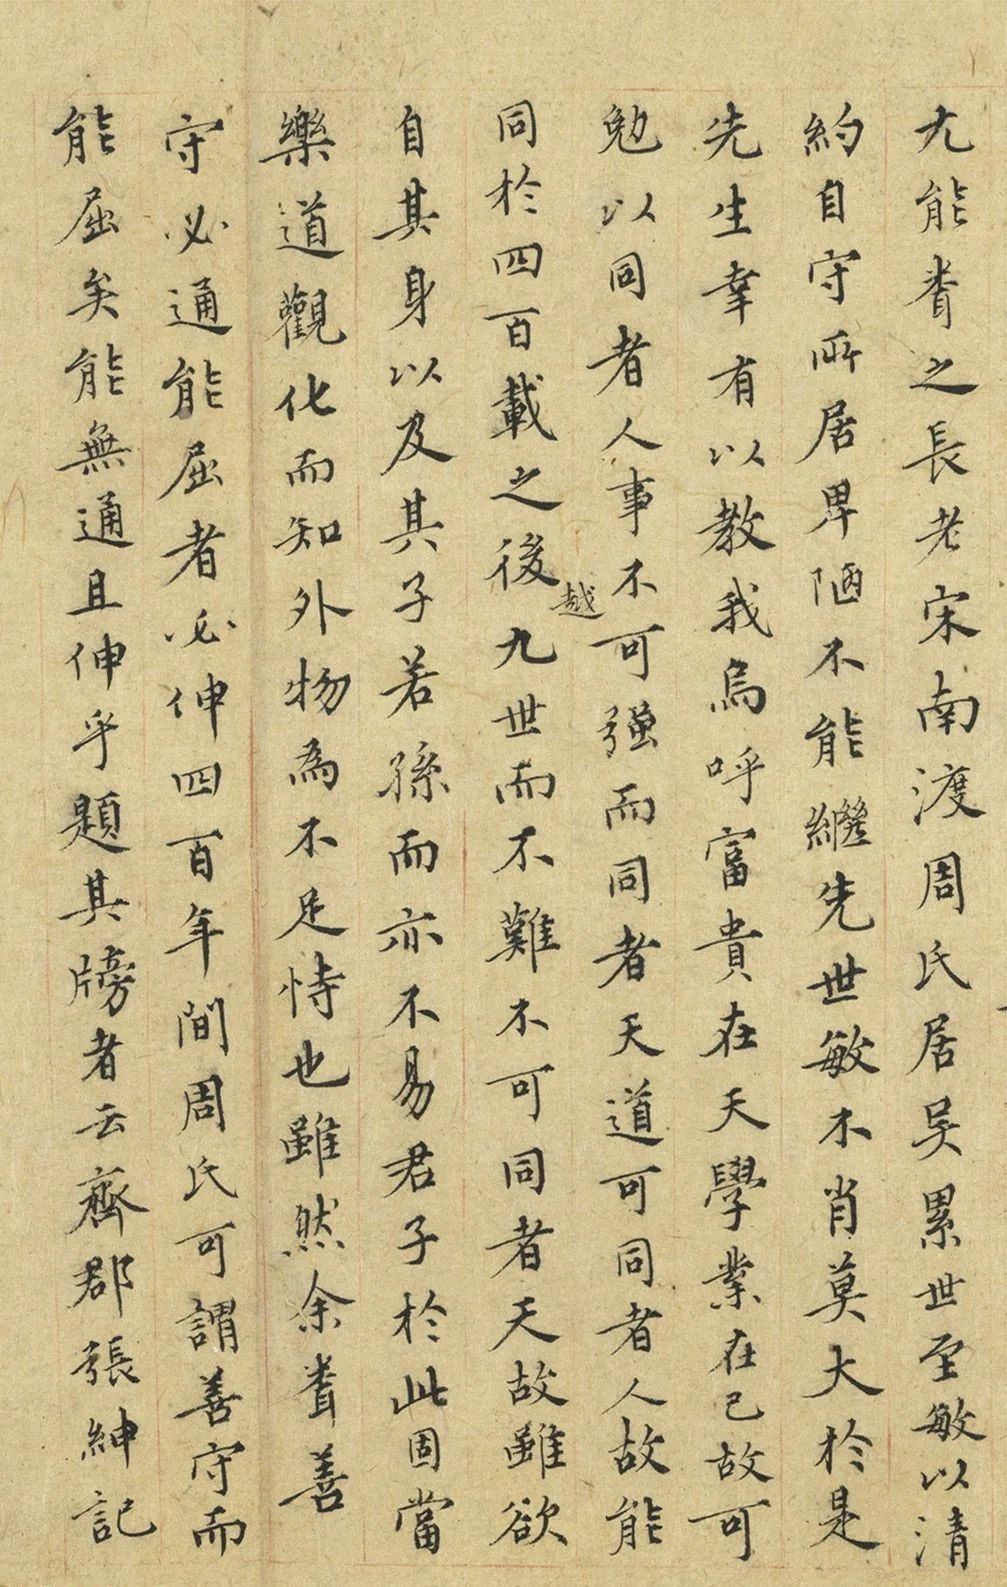 尤能耆之長老宋南渡周氏居吳累世至敏以清
約自守所居卑陋不能繼先世敏不肖莫大於是
先生幸有以教我烏呼富貴在天學業在己故可
勉以同者人事不可強而同者天道可同者人故能
同於四百載之後越九世而不難不可同者天故雖欲
自其身以及其子若孫而亦不易君子於此固當
樂道觀化而知外物為不足恃也雖然余耆善
守必通能屈者必伸四百年間周氏可謂善守而
能屈矣能無通且伸乎題其牓者云齊郡張紳記